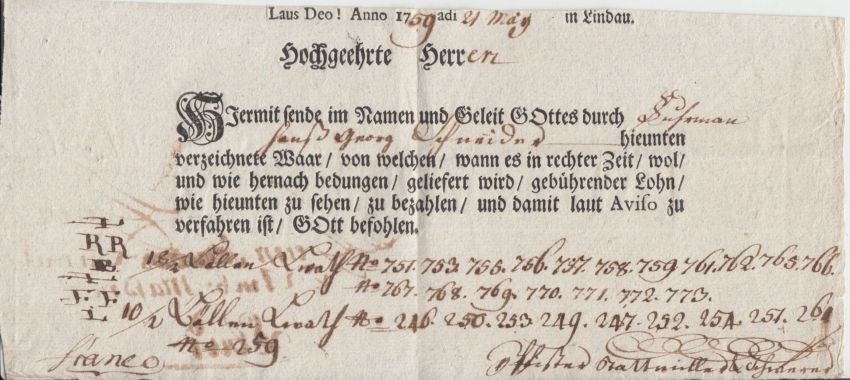 Laus Deo! Anno 1759 adi 21 May in Lindau.
Hochgeehrte Herren
HIermit sende im Namen und Geleit GOttes durch Fuhrman
Hanß Georg Schneider hieunten
verzeichnete Waar/ von welchen/ wann es in rechter Zeit/ wol/
und wie hernach bedungen/ geliefert wird/ gebührender Lohn/
wie hieunten zu sehen/ zu bezahlen/ und damit laut Aviso zu
verfahren ist/ GOtt befohlen.
RR
18/2 Ballen No 751. 753. 755. 756. 757. 758. 759. 761. 762. 765. 766.
No 767. 768. 769. 770. 771. 772. 773.
10/2 Ballen No 246. 250. 253. 249. 247. 252. 254. 251. 261
No 259
franco